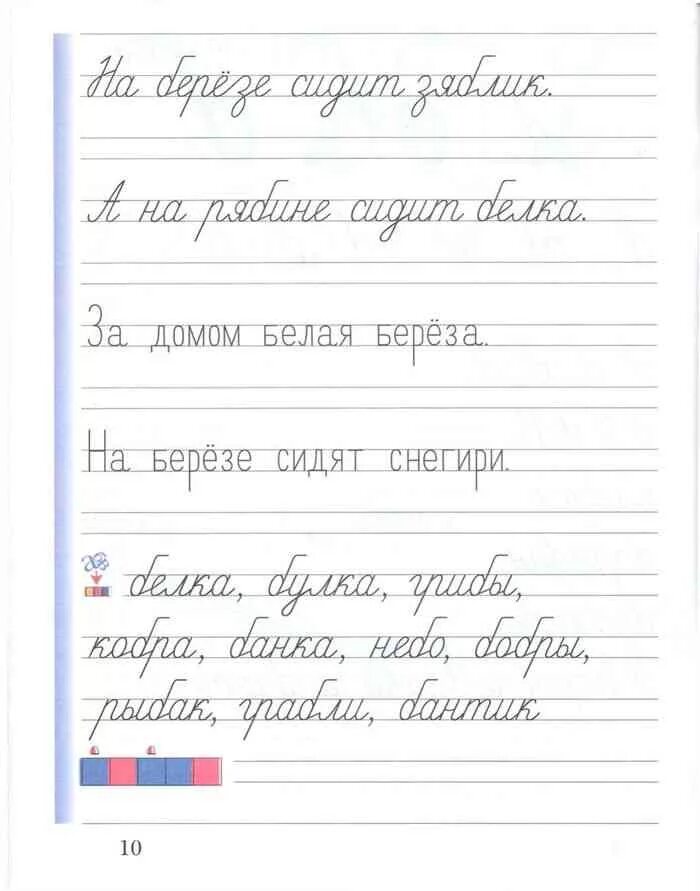 На берёзе сидит зяблик.
А на рябине сидит белка.
За домом белая берёза.
На берёзе сидят снегири.
белка, булка, грибы,
кобра, банка, небо, бобры,
рыбак, грабли, бантик
10